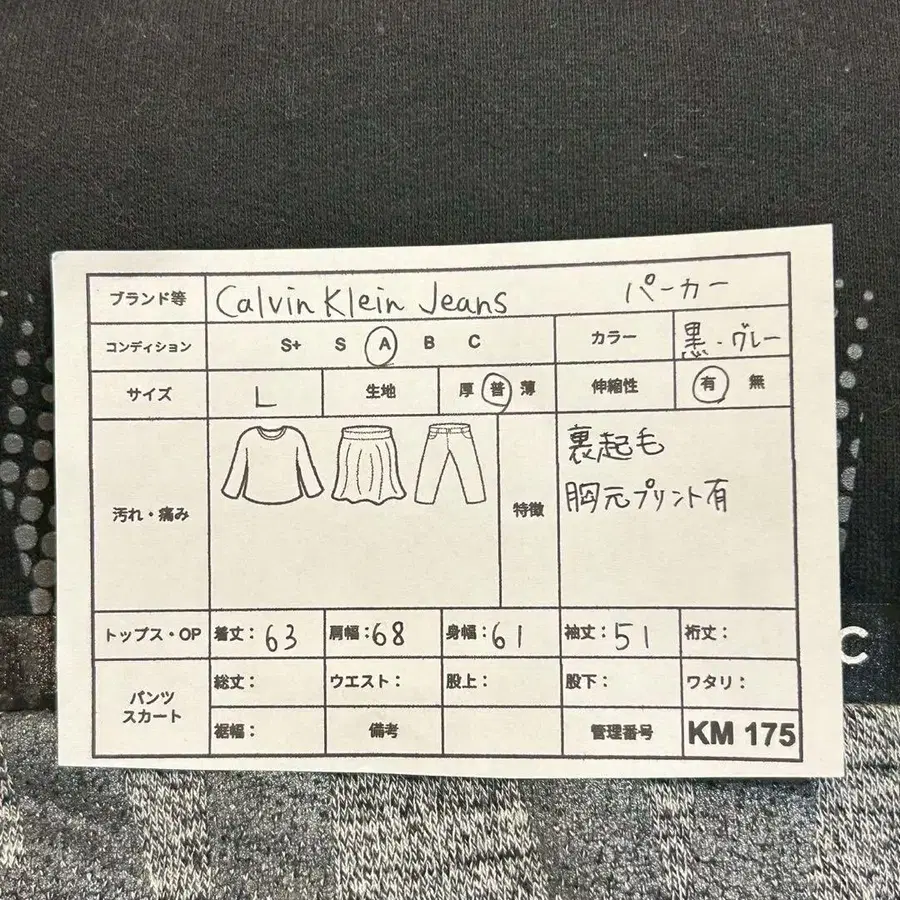 ブランド等 Calvin Klein Jeans パーカー
コンディション S+ S A B C カラー 黒・グレー
サイズ L 生地 厚 普 薄 伸縮性 有 無
汚れ・痛み 特徴 裏起毛
胸元プリント有
トップス・OP 着丈:63 肩幅:68 身幅:61 袖丈:51 裄丈:
パンツ スカート 総丈: ウエスト: 股上: 股下: ワタリ:
裾幅: 備考 管理番号 KM 175
C